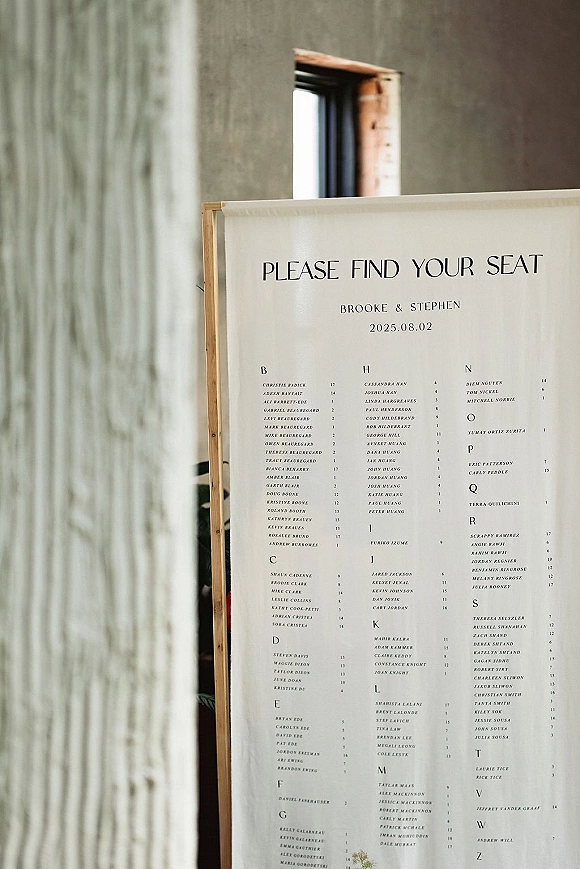 PLEASE FIND YOUR SEAT
BROOKE & STEPHEN
2025.08.02
B
CHRISTIE BADICK 17
ADESH BANVAIT 14
ALI BARRETT-EDE 5
GABRIEL BEAUREGARD 2
LEVI BEAUREGARD 2
MARK BEAUREGARD 1
MIKE BEAUREGARD 2
OWEN BEAUREGARD 2
THERESA BEAUREGARD 2
TRACY BEAUREGARD 1
BIANCA BEHARRY 17
AMBER BLAIR 1
GARTH BLAIR 2
DOUG BOONE 12
KRISTINE BOONE 12
ROLAND BOOTH 13
KATHRYN BRAUEN 13
KEVIN BRAUEN 15
ROSALEE BRUNO 17
ANDREW BURROWES 1
C
SHAUN CADENNE
BRODIE CLARK
MIKE CLARK
LESLIE COLLINS
KATHY COOK-PETTI
ADRIAN CRISTEA
SORA CRISTEA
D
STEVEN DAVIS
MAGGIE DIXON
TAYLOR DIXON
JUNE DOAN
KRISTINE DC
E
BRYAN EDE
CAROLYN EDE
DAVID EDE
PAT EDE
JORDON ERESMAN
ARI EWING
BRANDON EWING
F
DANIEL
G
KELLY GALARNEAU
KEVIN GALARNEAU
EMMA GAUTHIER
ALEX GORODETSKI
MARIA GORODETSKI
H
CASSANDRA HAN 4
JOSHUA HAN 4
LINDA HARGREAVES 3
PAUL HENDERSON 8
CODY HILDEBRAND 9
ROB HILDEBRANT 1
GEORGE HILL 11
AVNEET HUANG
DANA HUANG 4
IAN HUANG
JOHN HUANG 1
JORDAN HUANG 4
JOSH HUANG 4
KATIE HUANG 1
PAUL HUANG 1
PETER HUANG 1
I
YURIKO IZUME 9
J
JARED JACKSON 6
KELSEY JENAL 11
KEVIN JOHNSON 15
DAN JONIK 11
CARY JORDAN 16
K
MAHIR KALRA 11
ADAM KAMMER 15
CLAIRE KEDDY 8
CONSTANCE KNIGHT 12
JOAN KNIGHT 1
L
SHAHISTA LALANI 17
BRENT LALONDE
STEF LAVICH
TINA LAW
BRENDAN LEE
MEGALI LEONG
COLE LESYK
M
TAYLAR MAAS
ALEX MACKINNON
JESSICA MACKINNON
ROBERT MACKINNON
CARLY MARTIN
PATRICK MCHALE
IMRAN MOHIUDDIN
DALE MURRAY
N
DIEM NGUYEN 14
TOM NICKEL 6
MITCHELL NORRIE 1
O
YUMAY ORTIZ ZURITA 1
P
ERIC PATTERSON 7
CARLY PEDDLE 15
Q
TERRA QUILICHINI 1
R
SCRAPPY RAMIREZ 17
ANGIE RAWJI 6
RAHIM RAWJI 6
JORDAN REGNIER 10
BENJAMIN RINGROSE 12
MELANY RINGROSE 12
JULIA ROONEY 17
S
THERESA SELSZLER 7
RUSSELL SHANAHAN 12
ZACH SHAND 12
DEREK SHTAND 6
KATELYN SHTAND 4
GAGAN SIDHU 17
ROBERT SIRY
CHARLEEN SLIWON 13
JAKUB SLIWON 13
CHRISTIAN SMITH 16
TANYA SMITH 1
RILEY SOK 13
JESSIE SOUSA 16
JOHN SOUSA 3
JULIA SOUSA 3
T
LAURIE TICE 3
RICK TICE 3
V
JEFFREY VANDER GRAAF 14
W
ANDREW WILL 7
Z